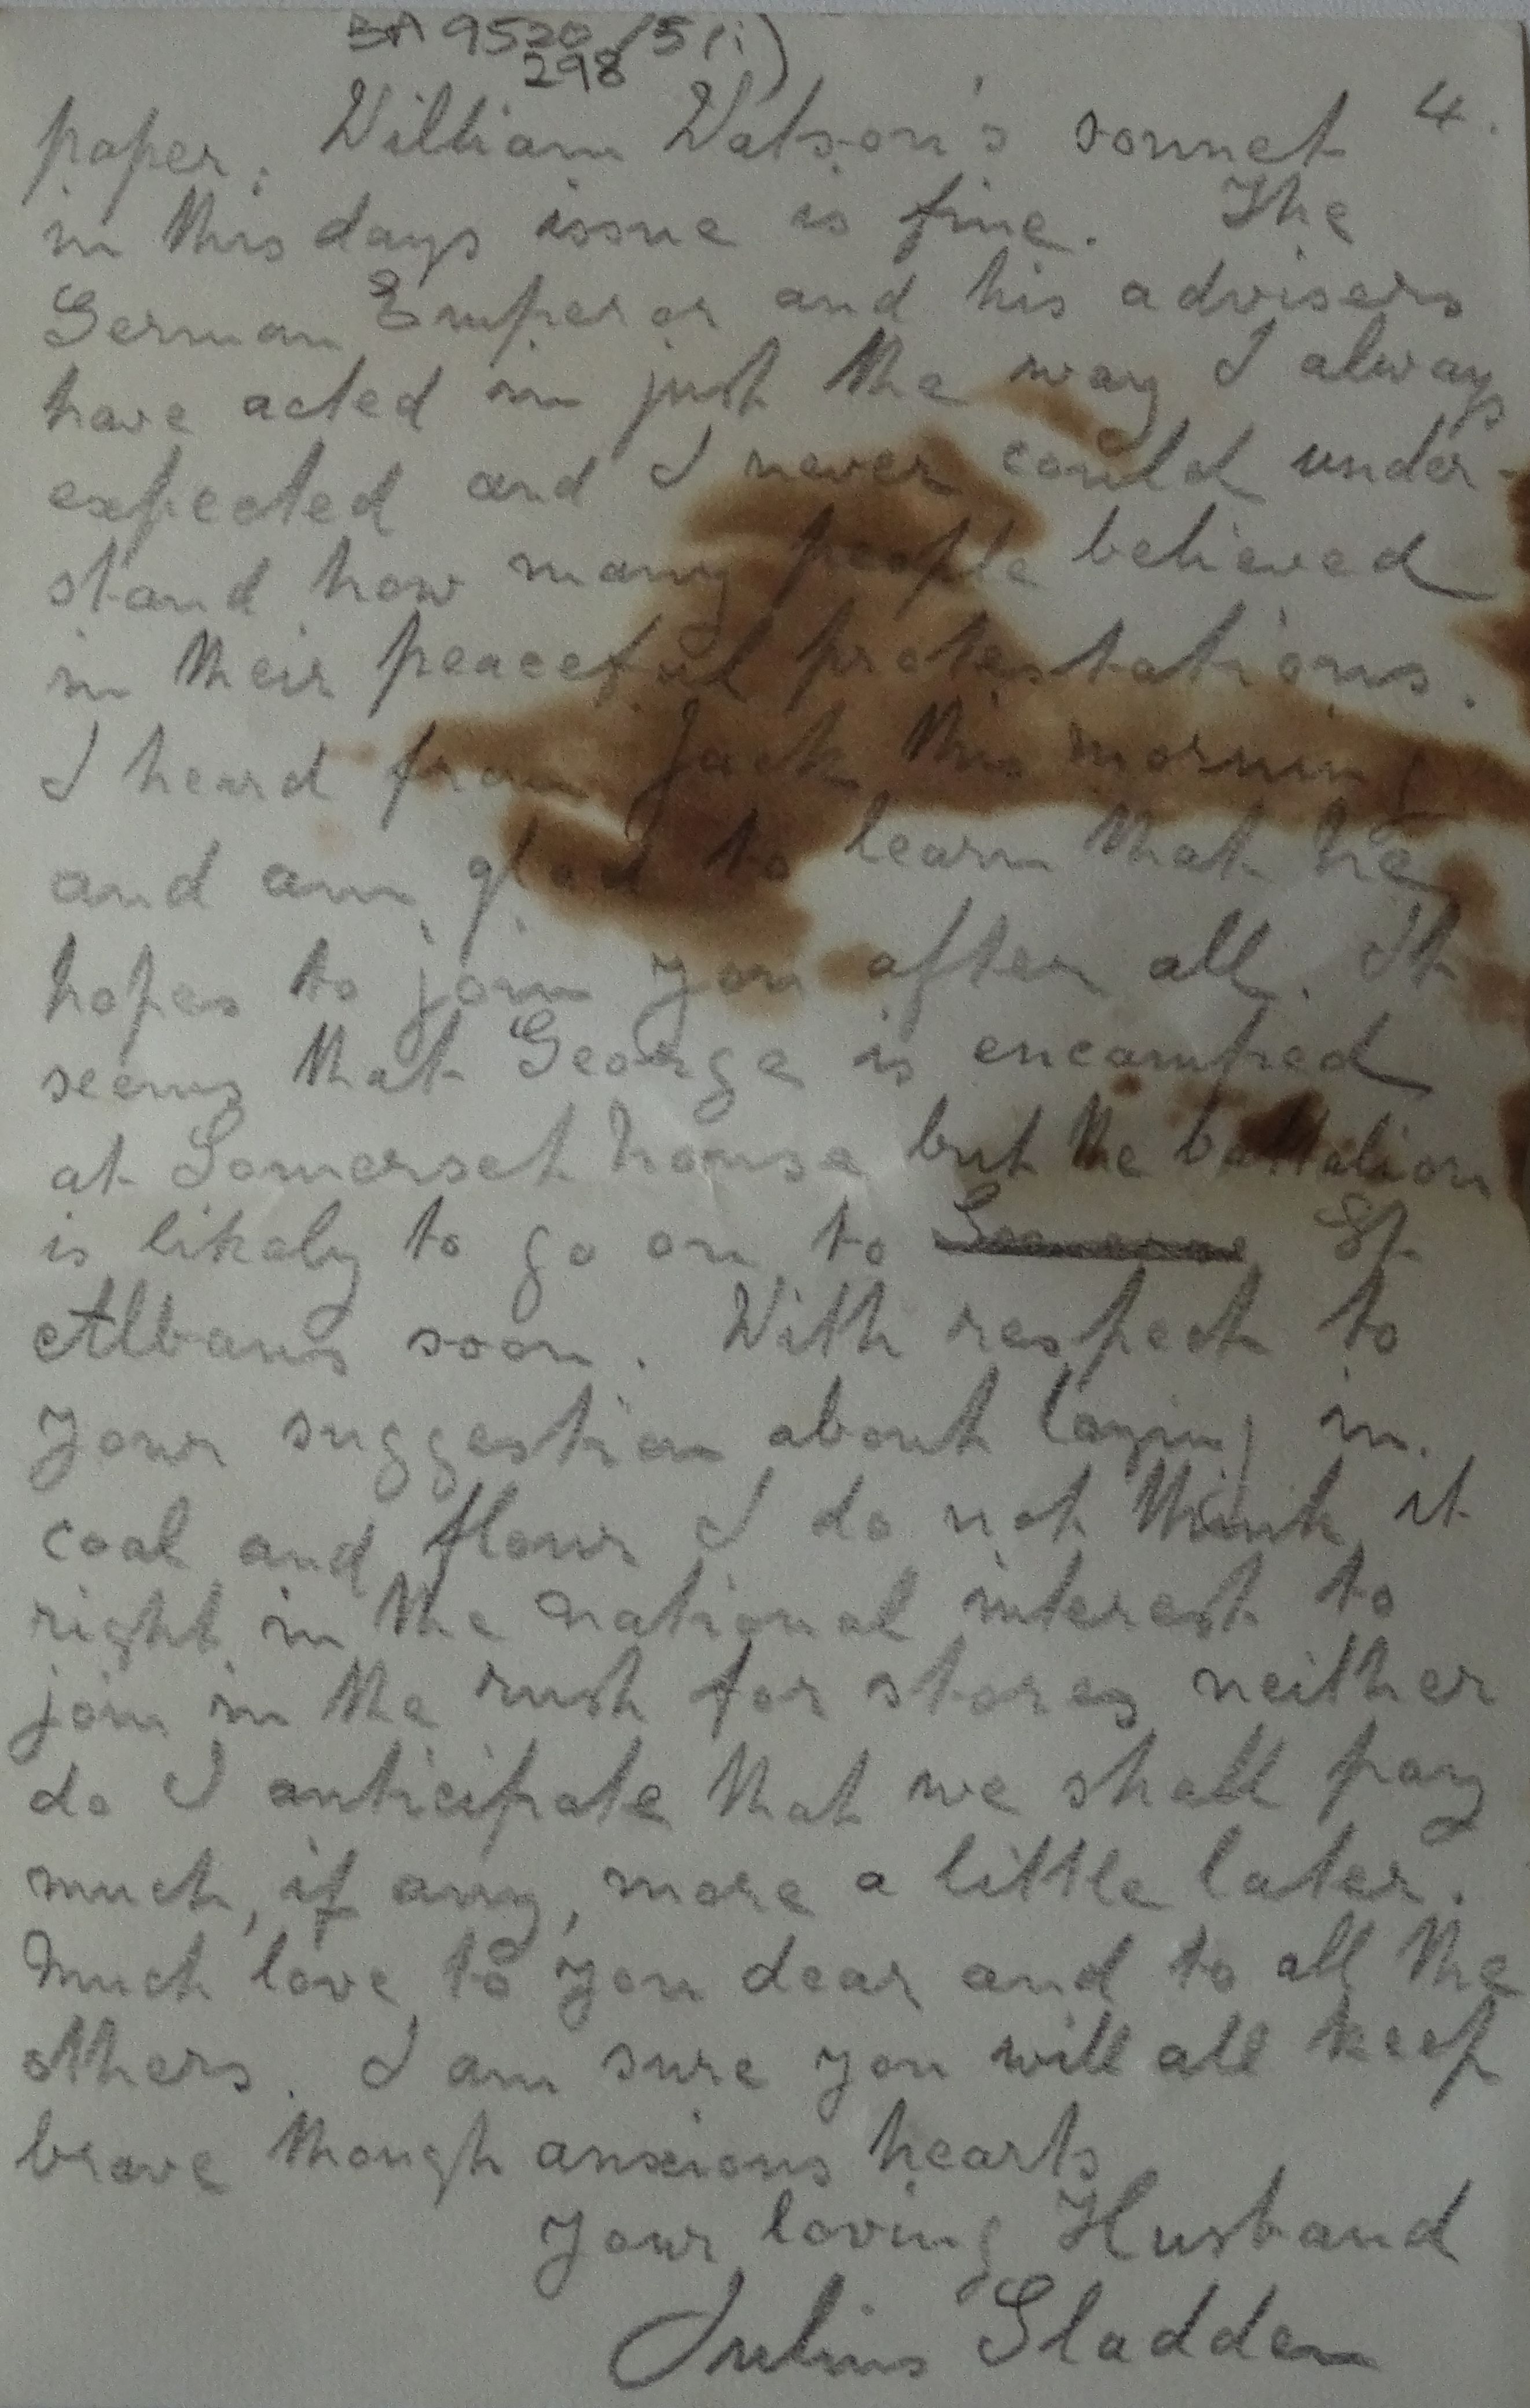 BA 9520/5(i)
298
4.
paper; William Watson's sonnet
in this days issue is fine. The
German Emperor and his advisers
have acted in just the way I always
expected and I never could under-
stand how many people believed
in their peaceful protestations.
I heard from Jack this morning
and am glad to learn that he
hopes to join you after all. It
seems that George is encamped
at Somerset house but the battalion
is likely to go on to St
Albans soon. With respect to
your suggestion about laying in
coal and flour I do not think it
right in the national interest to
join in the rush for stores neither
do I anticipate that we shall pay
much, if any, more a little later.
Much love to you dear and to all the
others. I am sure you will all keep
brave though anxious hearts
Your loving Husband
Julius Sladden